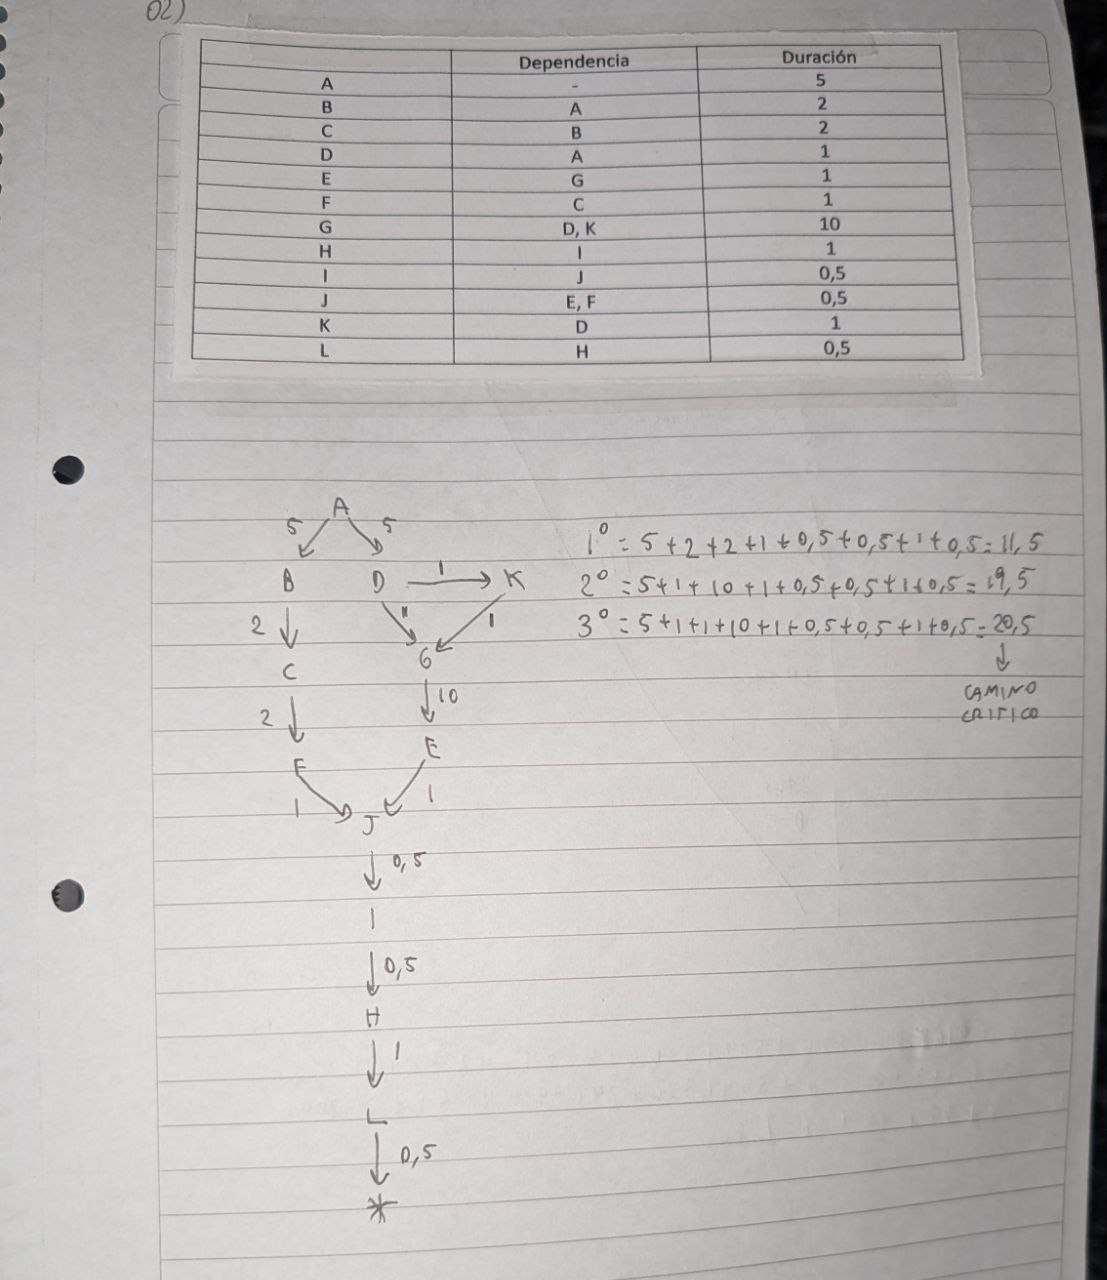 02)
Dependencia Duración
A - 5
B A 2
C B 2
D A 1
E G 1
F C 1
G D, K 10
H I 1
I J 0,5
J E, F 0,5
K D 1
L H 0,5
A
5 5
B D 1 K
2 1 1
G
C 10
2 E
F
1 1
J
0,5
I
0,5
H
1
L
0,5
*
1º = 5+2+2+1+0,5+0,5+1+0,5=11,5
2º = 5+1+10+1+0,5+0,5+1+0,5=19,5
3º = 5+1+1+10+1+0,5+0,5+1+0,5=20,5
CAMINO
CRITICO